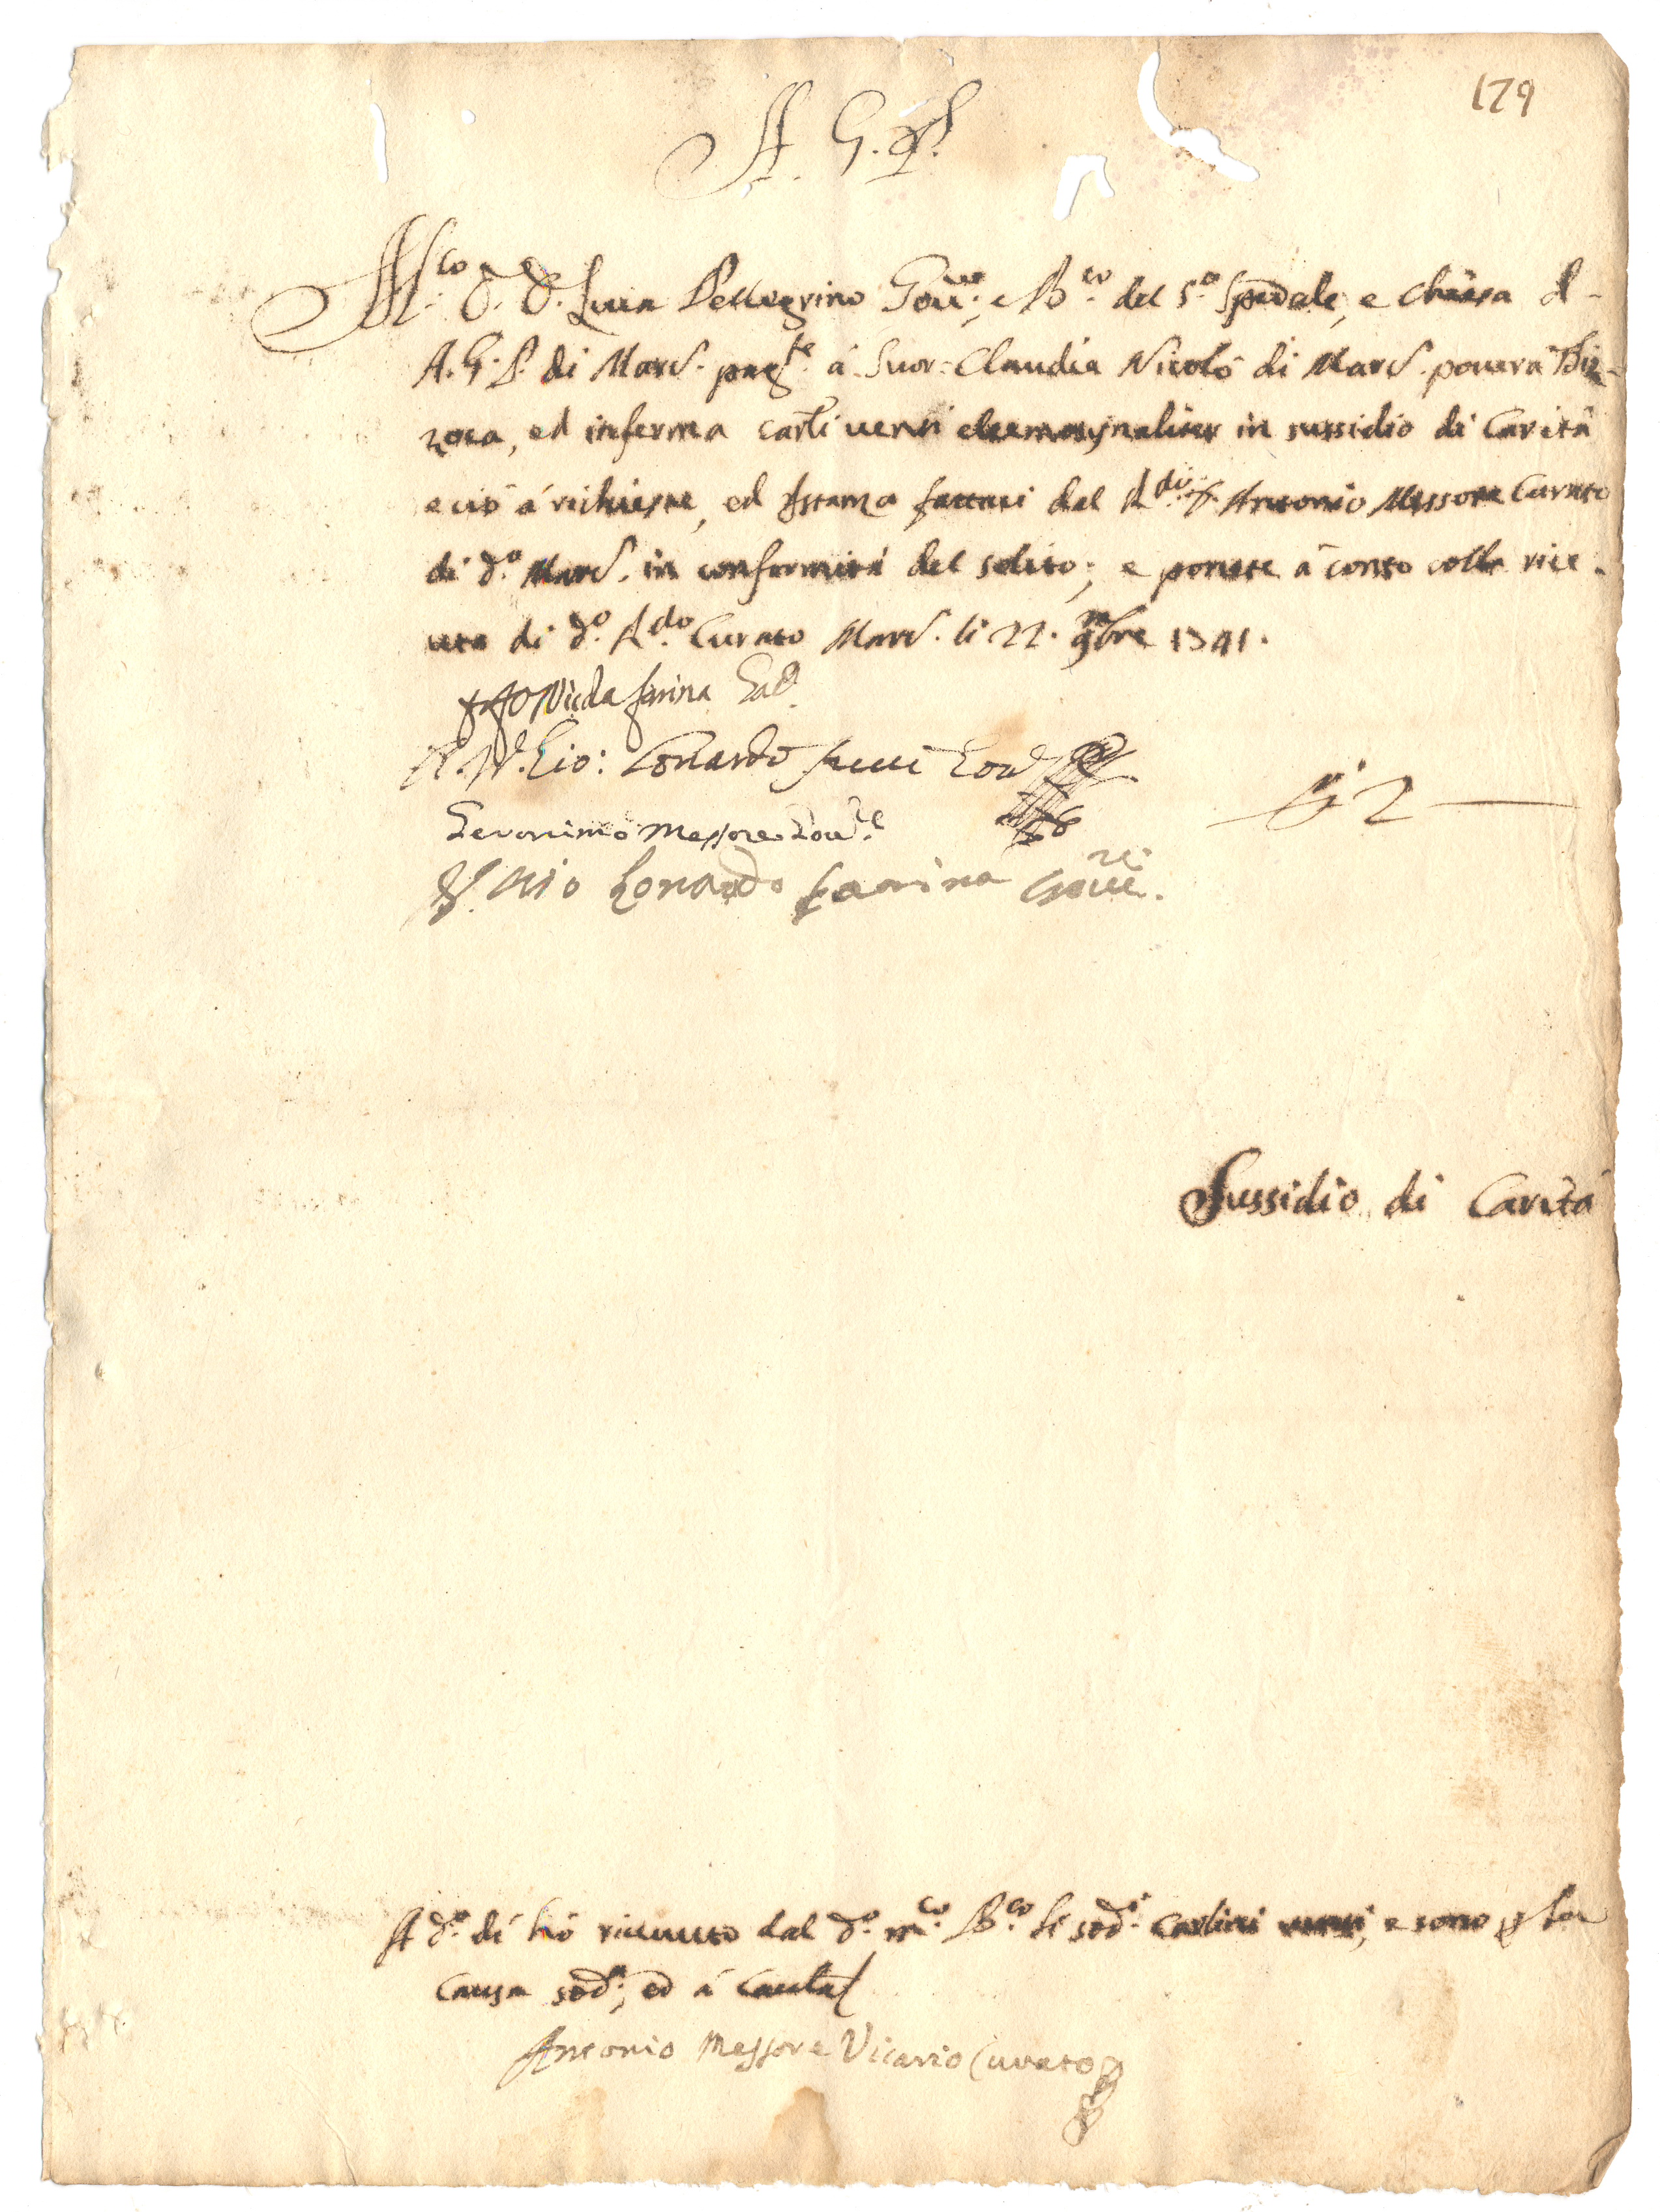 179
A. G. P.
M.co D. D. Luca Pellegrino Gov.re, e B.co del S.o Spedale, e Chiesa d-
A. G. P. di Mard. pag.te á Suor Claudia Nicolò di Mard. povera Biz-
zoca, ed inferma carli venti eleemosynaliter in sussidio di Carità
e ciò á richieste, ed istanza fattaci dal R.do D. Antonio Messore Curato
di d.o Mard. in conformità del solito; e ponete á conto colla rice-
uta di d.o R.do Curato Mard. li 22. 9mbre 1741.
Nic.la farina Gov.
Gio: Lonardo Gov.
Geronimo Messore Gov.re
D. Lonardo farina Gove.re
2
Sussidio di Carità
A d.o dí hó ricevuto dal d.o m.co B.co li sod.i Carlini venti, e sono p la
causa sod.a, ed á cautela
Antonio Messore Vicario Curato